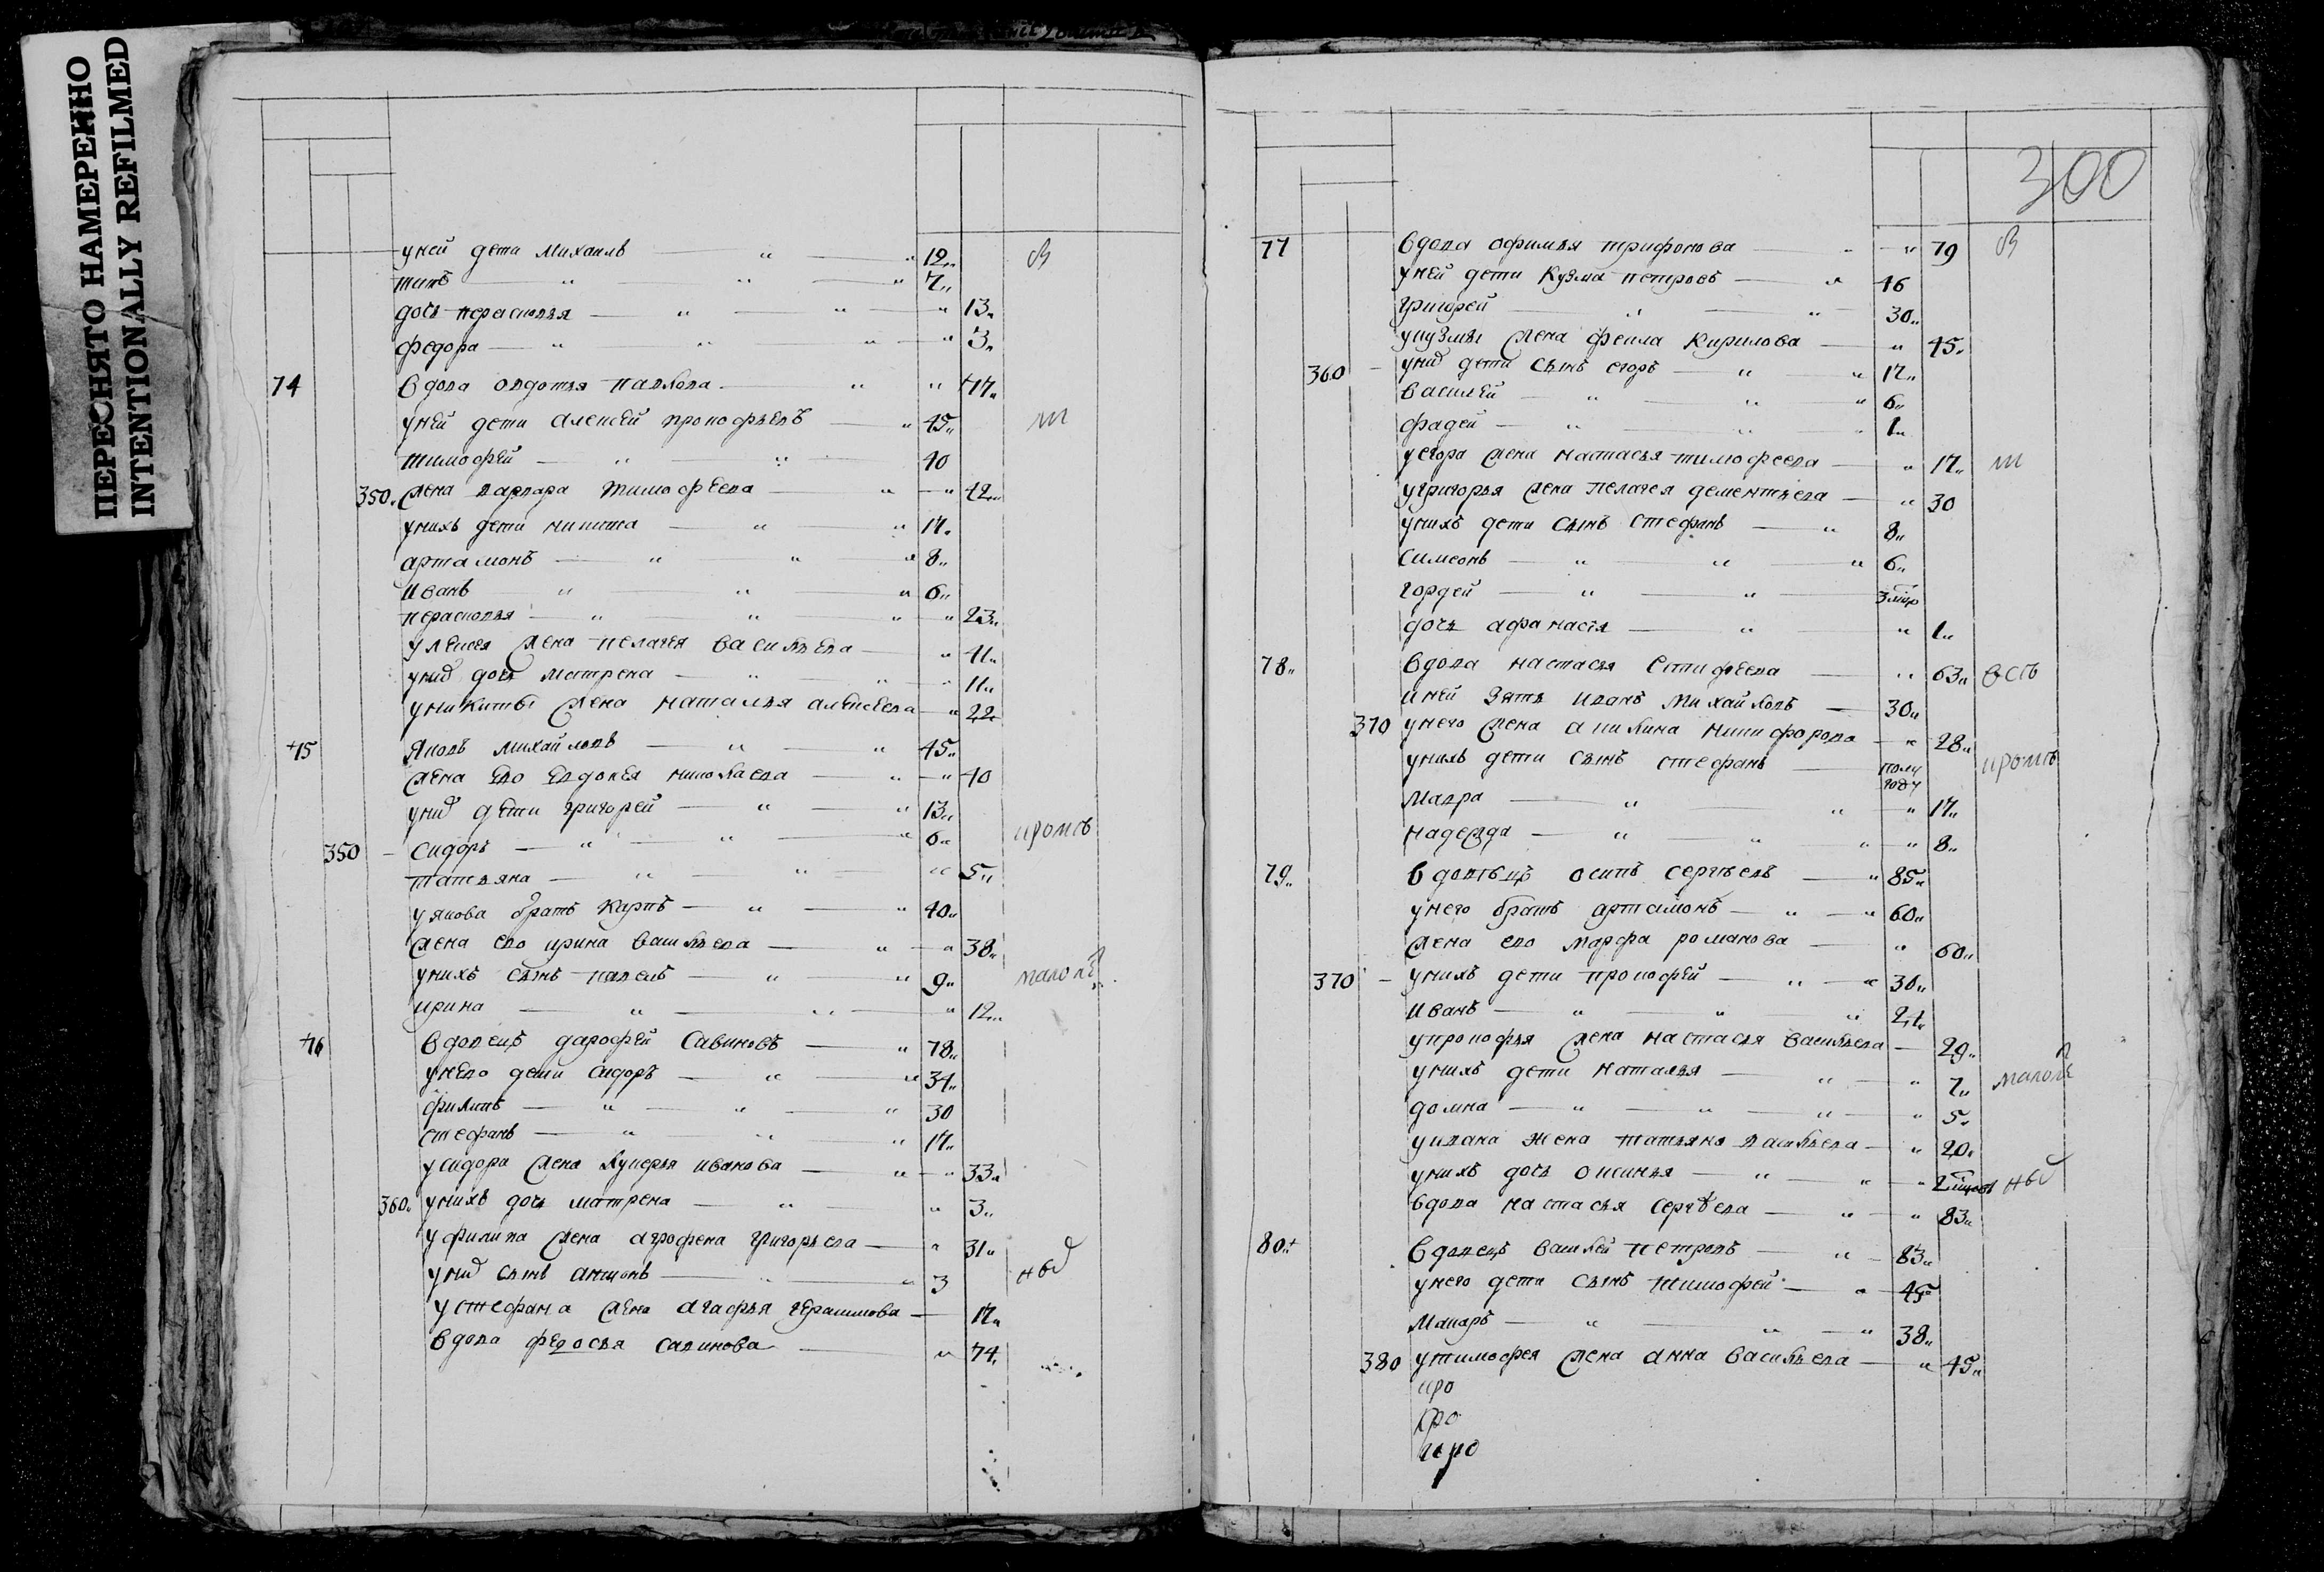 ПЕРЕСНЯТО НАМЕРЕННО
INTENTIONALLY REFILMED
уней дети Михаилъ 12
титъ 7
дочь парасковья 13
федора 3
74 вдова овдотья павлова 77
уней дети алексей прокофьевъ 45 т
тимофей 40
350 жена варвара тимофеева 42
унихъ дети никита 17
артамонъ 8
иванъ 6
парасковья 23
жена пелагея васильева 41
дочь матрена 11
уникиты жена наталья алексеева 22
75 яковъ михайловъ 45
жена ево евдокея николаева 40
дети григорей 13
350 сидоръ 6 кромъ
татьяна 5
уякова братъ карпъ 40
жена ево ирина васильева 38
унихъ сынъ павелъ 9 малолѣ
ирина 12
76 вдовецъ дарофей савиновъ 78
унево дети сидоръ 34
филипъ 30
стефанъ 17
усидора жена лукерья иванова 33
360 унихъ дочь матрена 3
уфилипа жена агрофена григорьева 31
сынъ антонъ 3
устефана жена агафья герасимова 17
вдова федосья савинова 74
300
77 вдова офимья трифонова 79 В
уней дети кузма петровъ 46
григорей 30
укузмы жена фекла кирилова 45
360 дети сынъ егоръ 17
василей 6
фадей 1
уегора жена настасья тимофеева 17 т
угригорья жена пелагея дементьева 30
унихъ дети сынъ стефанъ 8
симеонъ 6
гордей
дочь афанасія 1
78 вдова настасья 63 есть
уней зять иванъ михайловъ 30
370 унего жена акилина никифорова 28
унихъ дети сынъ стефанъ полу году кромъ
мавра 17
надежда 8
79 вдовецъ осипъ сергѣевъ 85
унего братъ артамонъ 60
жена ево марфа романова 60
370 унихъ дети прокофей 30
иванъ 21
упрокофья жена настасья васильева 29
унихъ дети наталья 7 малолѣ
домна 5
уивана жена татьяна васильева 20
унихъ дочь оксинья
вдова настасья сергѣева 83
80 вдовецъ василей петровъ 83
унего дети сынъ тимофей 45
макаръ 38
380 утимофея жена анна васильева 45
кро
кро
кро